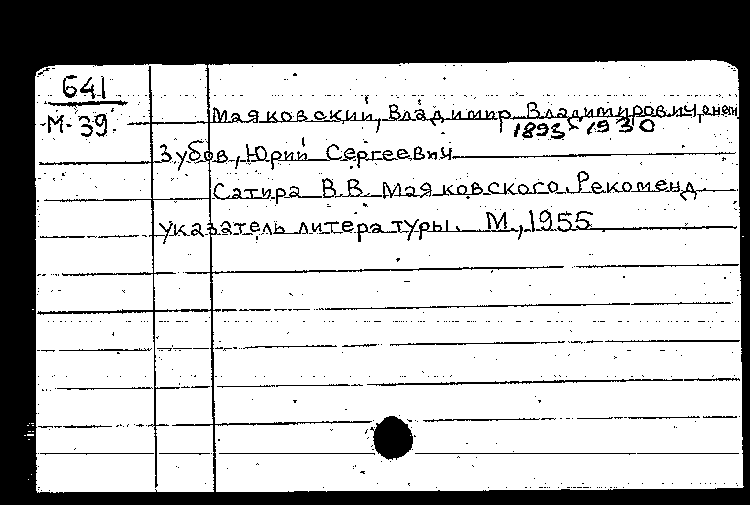 641
М-39.
Маяковский, Владимир Владимирович, о нем
1893-1930
Зубов, Юрий Сергеевич
Сатира В.В. Маяковского. Рекоменд.
указатель литературы. М., 1955